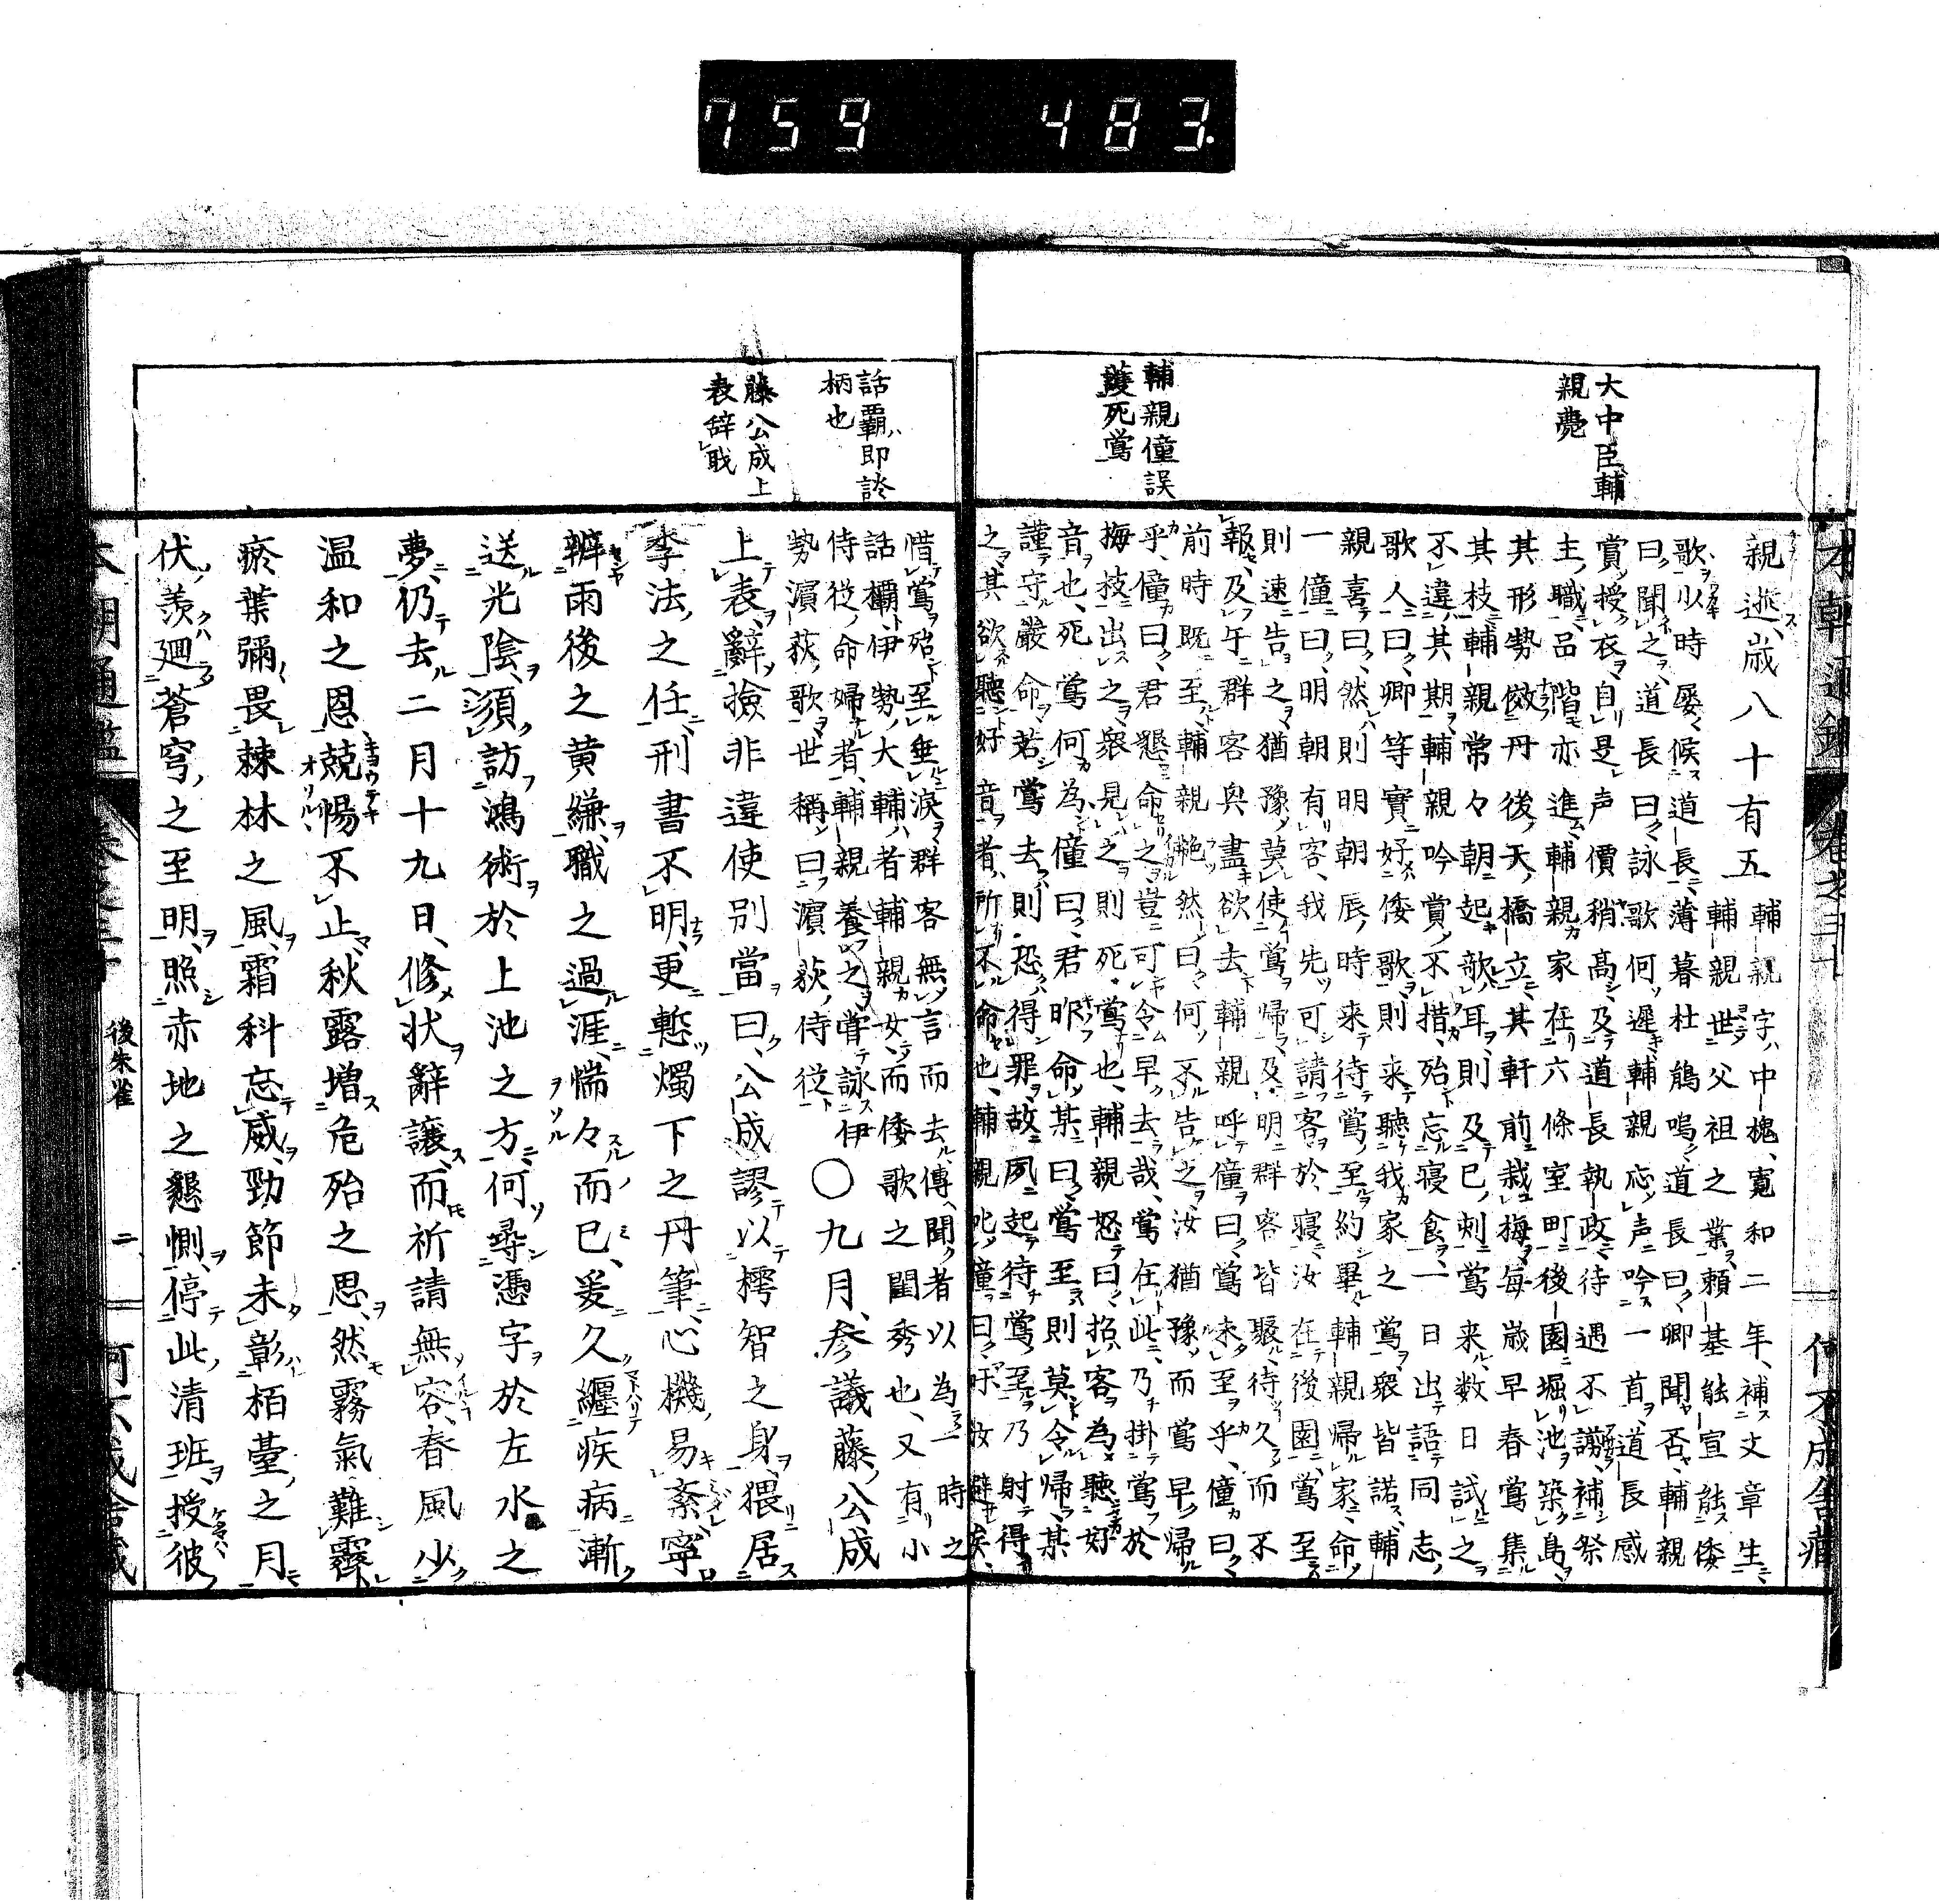 759 483.
大中臣輔
親薨
輔親僮誤
護死鶯
親逝、歳八十有五
輔親字中槐、寛和二年、補文章生、
輔親世父祖之業、頼基能宣能倭
歌、以時屡候道長、薄暮杜鵑鳴、道長曰、卿聞否、輔親
曰、聞之、道長曰、詠歌何遅、輔親応声吟一首、道長感
賞、授衣、自是声價稍高、及道長執政、待遇不譾、補祭
主、職品階亦進、輔親家在六條室町、後園堀池築島、
其形勢倣丹後天橋立、其軒前栽梅、毎歳早春鶯集
其枝、輔親常々朝起、欹耳、則及巳刺鶯来、数日試之
不違其期、輔親吟賞不措、殆忘寝食、一日出語同志
歌人曰、卿等實好倭歌、則来聴我家之鶯、衆皆諾、輔
親喜曰、然則明朝辰時来待鶯至、約畢、輔親帰家、命
一僮曰、明朝有客、我先可請客於寝、汝在後園、鶯至
則速告之、猶豫莫使鶯帰、及明群客皆聚、待久而不
報、及午群客興盡欲去、輔親呼僮曰、鶯未至乎、僮曰、
前時既至、輔親艴然曰、何不告之、汝猶豫而鶯早帰
乎、僮曰、君懇命之、豈可令早去哉、鶯在此、乃掛鶯於
梅枝出之、衆見之則死鶯也、輔親怒曰、招客為聴好
音也、死鶯何為、僮曰、君昨命某曰、鶯至則莫令帰、某
謹守嚴命、若鶯去則恐得罪、故夙起待鶯至、乃射得
之、其欲聴好音者、所不命也、輔親叱僮曰、吁汝避矣、
話覇即談
柄也
藤公成上
表辞戝
惜鶯殆至垂涙、群客無言而去、傳聞者以為一時之
話欛、伊勢大輔者輔親女、而倭歌之閨秀也、又有小
侍従命婦者、輔親養之、嘗詠伊
勢濵荻歌、世稱曰濵荻侍従
〇九月、参議藤公成
上表、辭撿非違使別當曰、公成謬以樗智之身、猥居
李法之任、刑書不明、更慙燭下之丹筆、心機易紊、寧
辨雨後之黄縑、職之過涯、惴々而已、爰久纏疾病漸
送光陰、須訪鴻術於上池之方、何尋憑字於左水之
夢、仍去二月十九日、修状辭讓、而祈請無容、春風少
温和之恩、兢惕不止、秋露増危殆之思、然霧氣難霽、
瘀葉彌畏棘林之風、霜科忘威、勁節未彰栢臺之月、
伏羨廻蒼穹之至明、照赤地之懇惻、停此清班、授彼
後朱雀
二